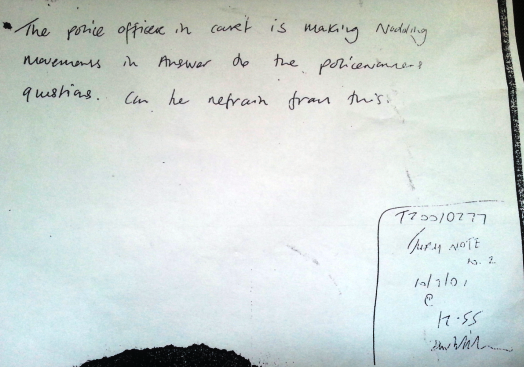 The police officer in court is making Nodding
movements in Answer to the policewomans
questions. Can he refrain from this.
T20010277
JURY NOTE
no. 2
@
12.55